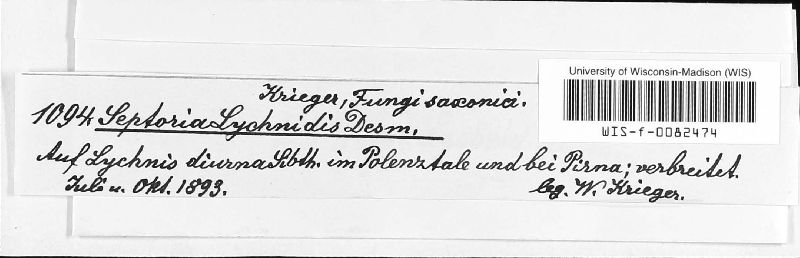 Krieger, Fungi saxonici.
University of Wisconsin-Madison (WIS)
WIS-f-0082474
1094 Septoria Lychnidis Desm.
Auf Lychnis diurna Sibth. im Polenztale und bei Pirna; verbreitet.
Juli u. Okt. 1893.
leg. W. Krieger.